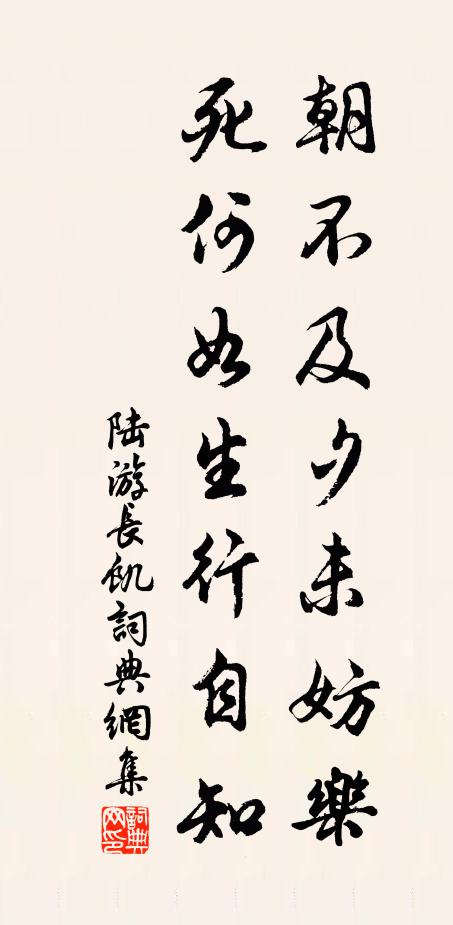 朝不及夕未妨樂
死何如生行自知
陆游長飢詞典網集
詞典
网印